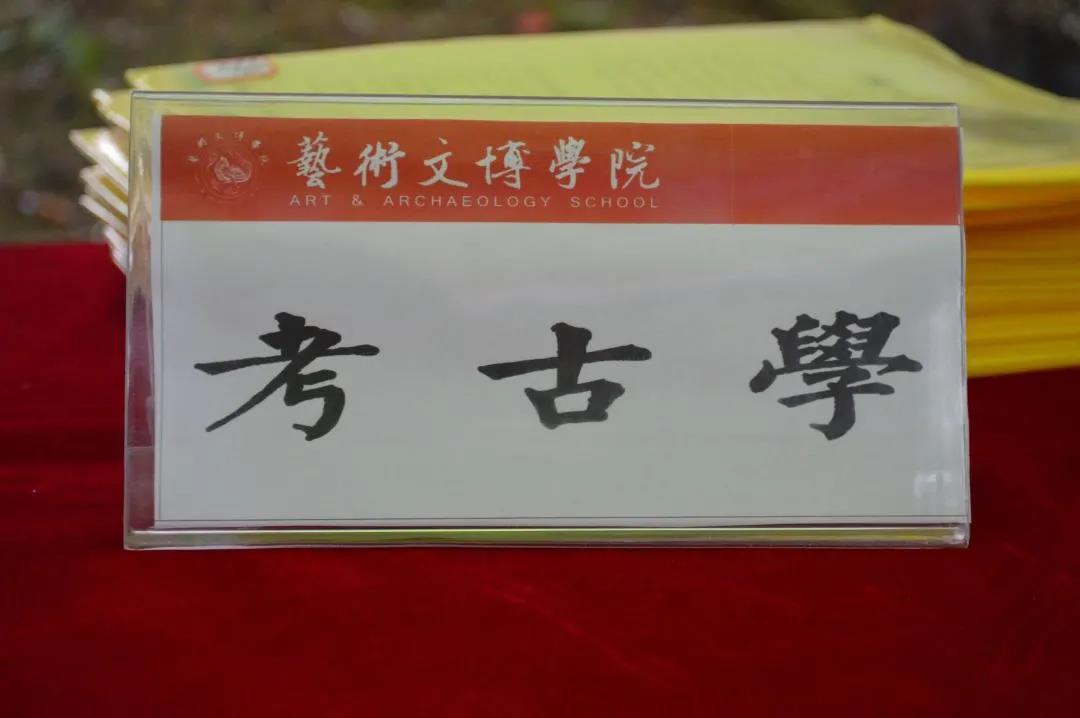 藝術文博學院
ART & ARCHAEOLOGY SCHOOL
考古學